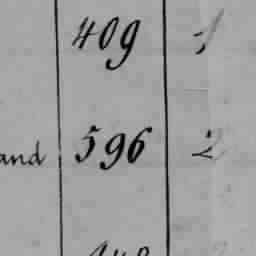 409 1
and 596 2